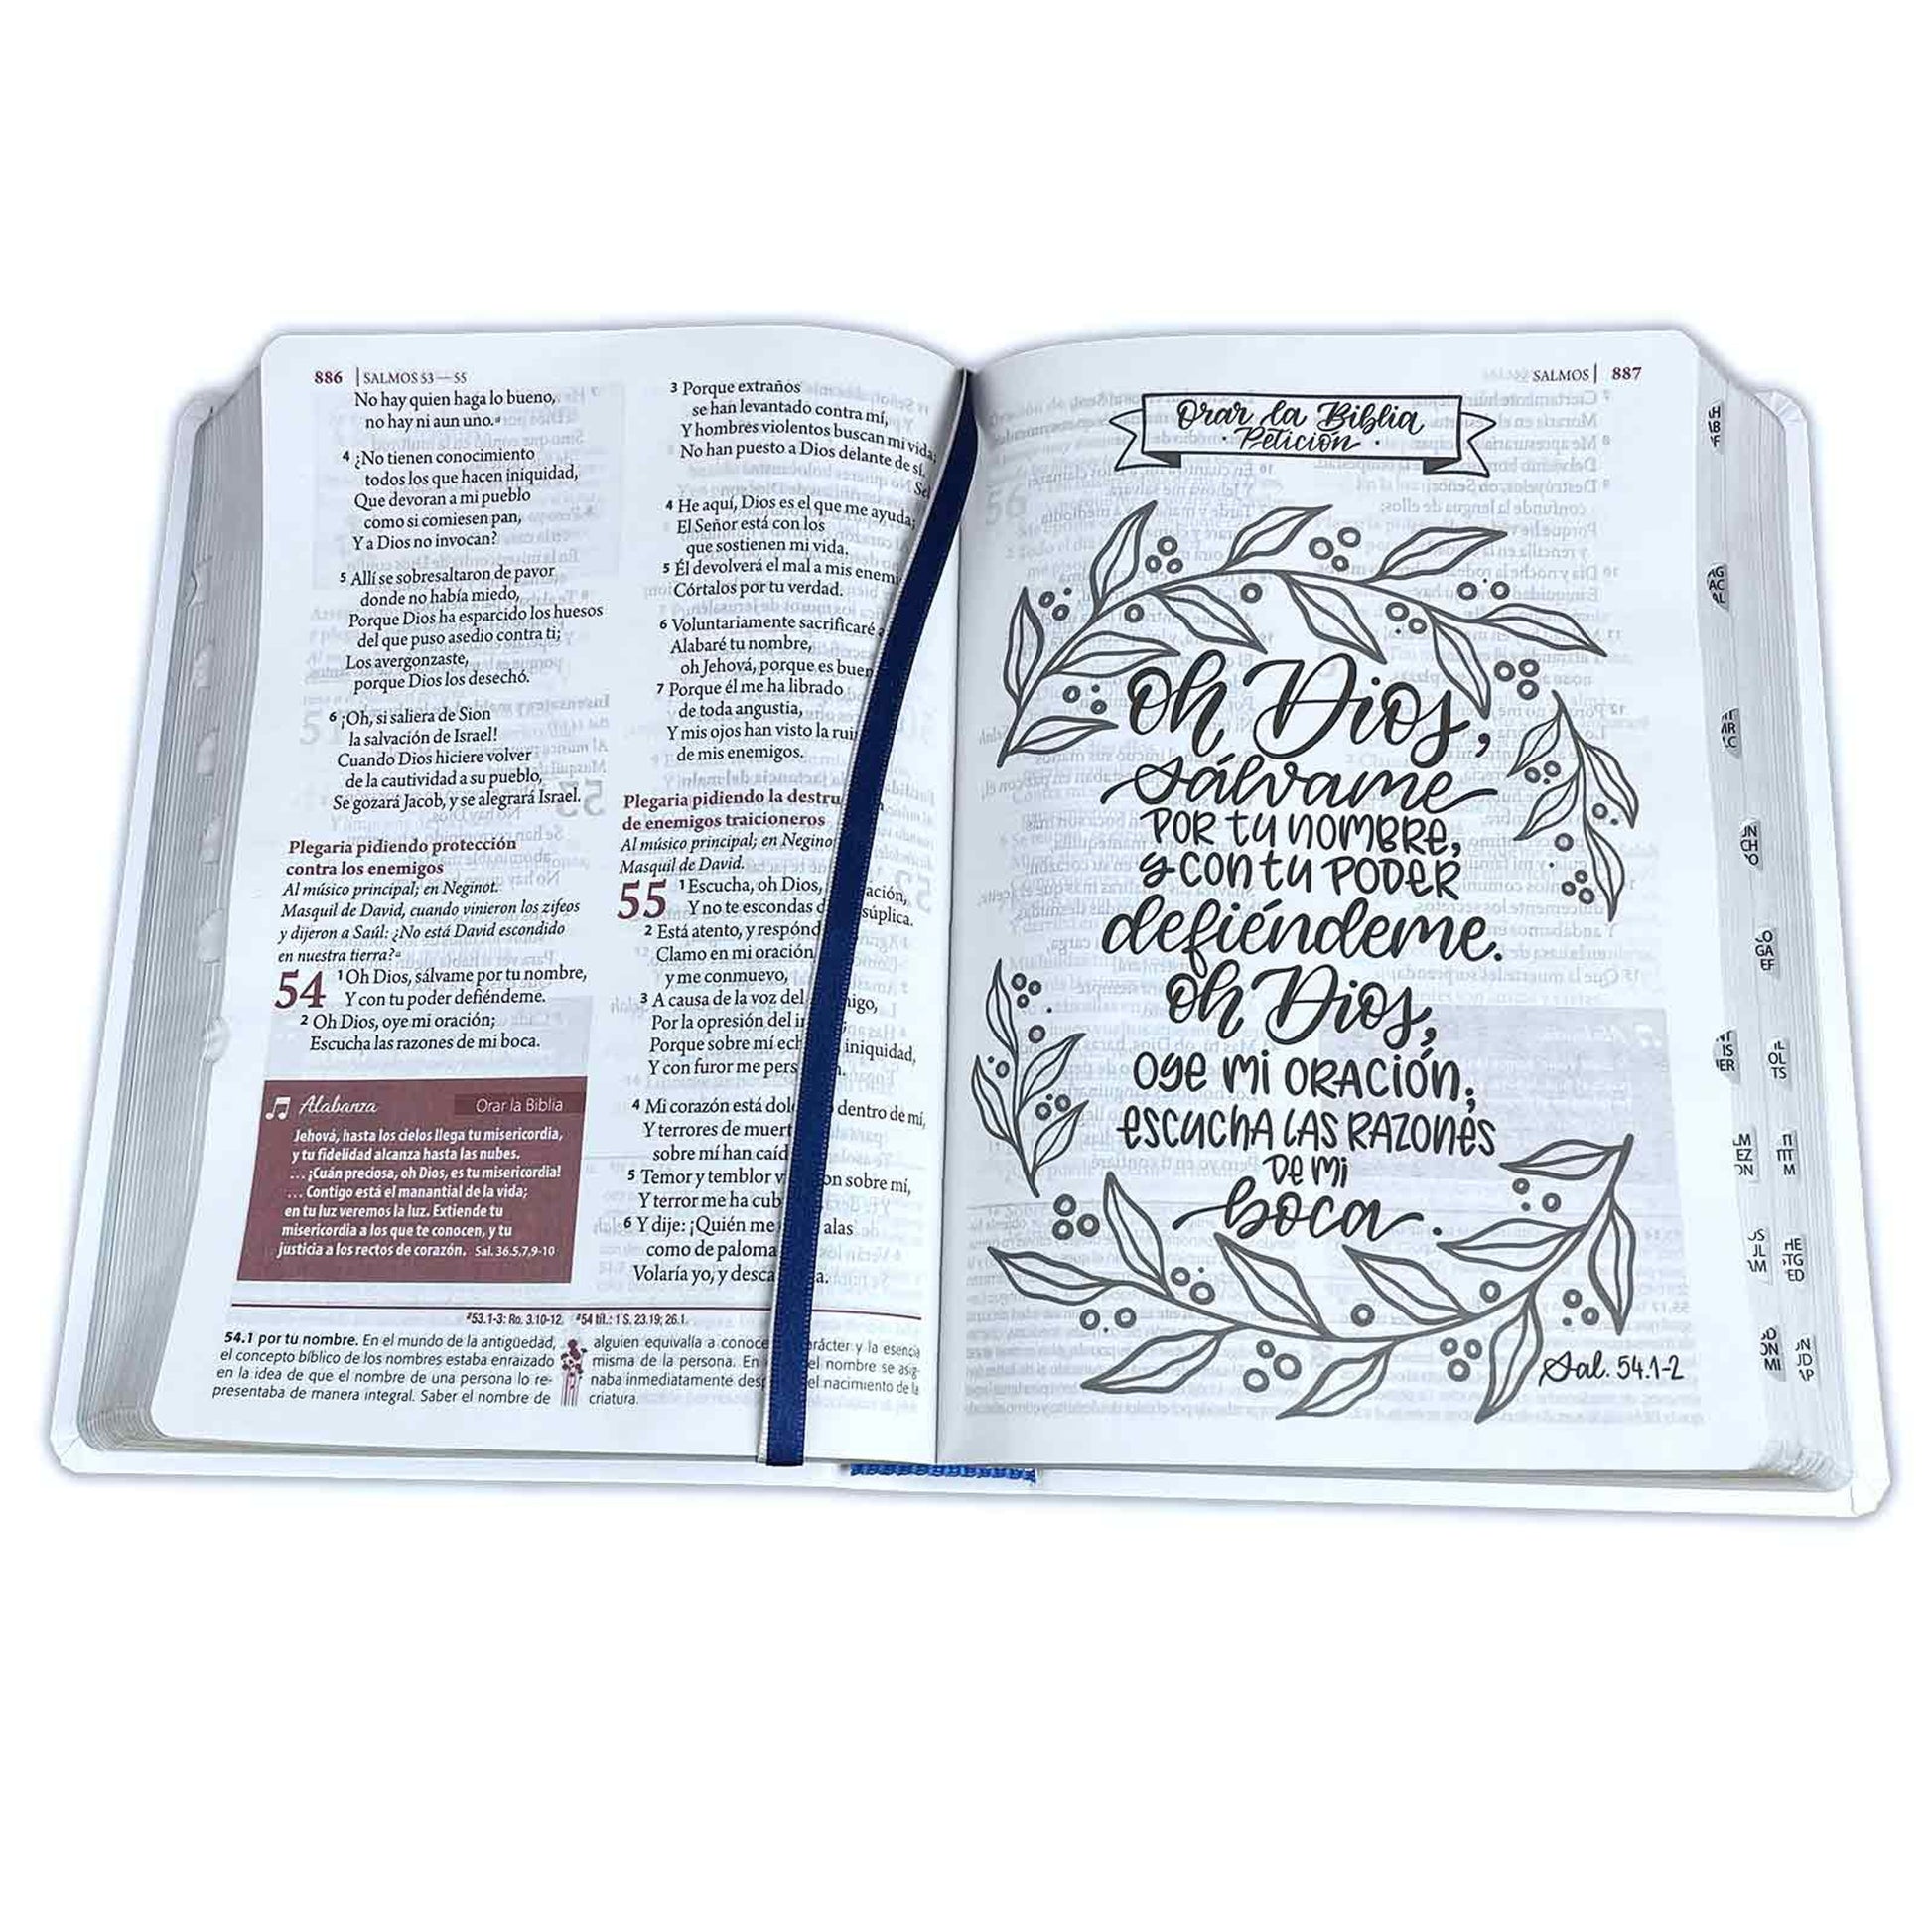 886 | SALMOS 53—55
No hay quien haga lo bueno,
no hay ni aun uno.a
4 ¿No tienen conocimiento
todos los que hacen iniquidad,
Que devoran a mi pueblo
como si comiesen pan,
Y a Dios no invocan?
5 Allí se sobresaltaron de pavor
donde no había miedo,
Porque Dios ha esparcido los huesos
del que puso asedio contra ti;
Los avergonzaste,
porque Dios los desechó.
6 ¡Oh, si saliera de Sion
la salvación de Israel!
Cuando Dios hiciere volver
de la cautividad a su pueblo,
Se gozará Jacob, y se alegrará Israel.
Plegaria pidiendo protección
contra los enemigos
Al músico principal; en Neginot.
Masquil de David, cuando vinieron los zifeos
y dijeron a Saúl: ¿No está David escondido
en nuestra tierra?a
54 1 Oh Dios, sálvame por tu nombre,
Y con tu poder defiéndeme.
2 Oh Dios, oye mi oración;
Escucha las razones de mi boca.
Alabanza Orar la Biblia
Jehová, hasta los cielos llega tu misericordia,
y tu fidelidad alcanza hasta las nubes.
... ¡Cuán preciosa, oh Dios, es tu misericordia!
... Contigo está el manantial de la vida;
en tu luz veremos la luz. Extiende tu
misericordia a los que te conocen, y tu
justicia a los rectos de corazón. Sal. 36.5,7,9-10
3 Porque extraños
se han levantado contra mí,
Y hombres violentos buscan mi vida;
No han puesto a Dios delante de sí.
4 He aquí, Dios es el que me ayuda;
El Señor está con los
que sostienen mi vida.
5 Él devolverá el mal a mis enemi
Córtalos por tu verdad.
6 Voluntariamente sacrificaré
Alabaré tu nombre,
oh Jehová, porque es buen
7 Porque él me ha librado
de toda angustia,
Y mis ojos han visto la rui
de mis enemigos.
Plegaria pidiendo la destru
de enemigos traicioneros
Al músico principal; en Negino
Masquil de David.
55 1 Escucha, oh Dios, ación,
Y no te escondas d súplica.
2 Está atento, y respónd
Clamo en mi oración
y me conmuevo,
3 A causa de la voz del igo,
Por la opresión del i
Porque sobre mí ech iniquidad,
Y con furor me pers
4 Mi corazón está dol dentro de mí,
Y terrores de muert
sobre mí han caíd
5 Temor y temblor v on sobre mí,
Y terror me ha cub
6 Y dije: ¡Quién me alas
como de paloma
Volaría yo, y desca a.
a53.1-3: Ro. 3.10-12. a54 tít.: 1 S. 23.19; 26.1.
54.1 por tu nombre. En el mundo de la antigüedad,
el concepto bíblico de los nombres estaba enraizado
en la idea de que el nombre de una persona lo re-
presentaba de manera integral. Saber el nombre de
alguien equivalía a conoce arácter y la esencia
misma de la persona. En el nombre se asig-
naba inmediatamente desp el nacimiento de la
criatura.
SALMOS | 887
Orar la Biblia
· Petición ·
oh Dios,
sálvame
por tu nombre,
y con tu poder
defiéndeme.
oh Dios,
oye mi oración;
escucha las razones
de mi
boca.
Sal. 54.1-2